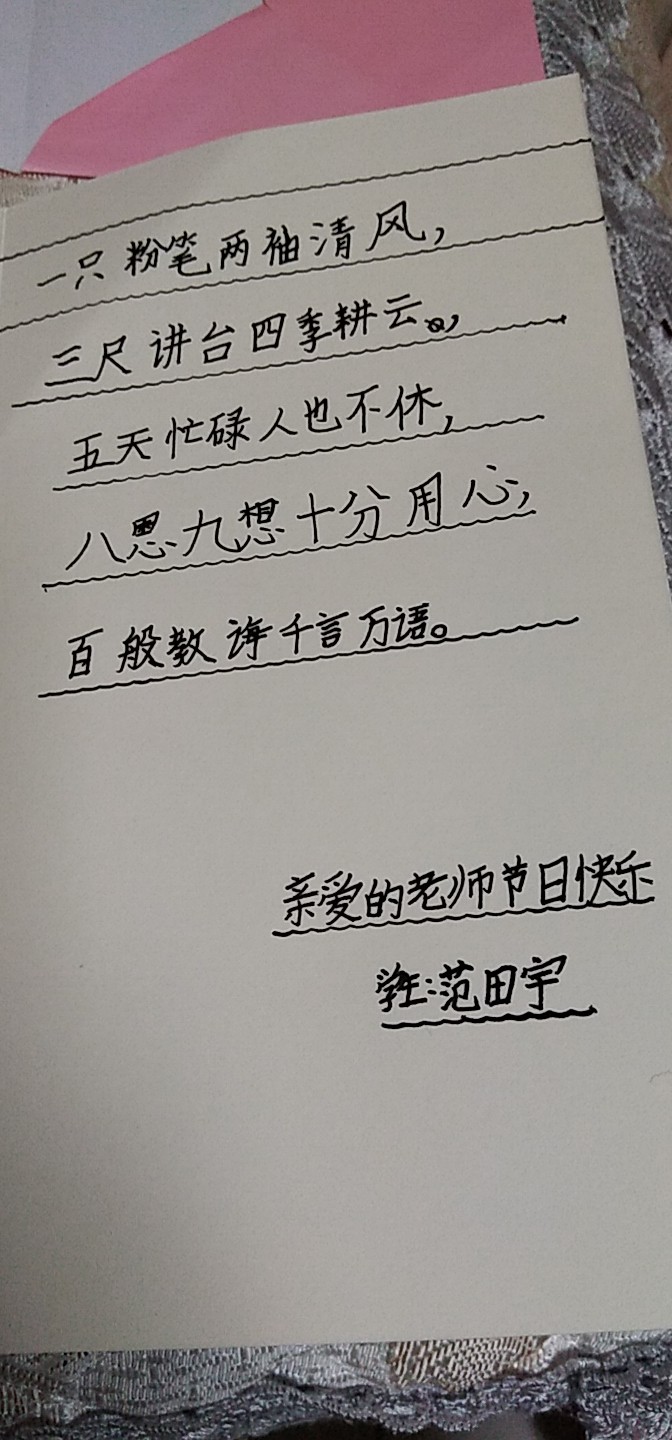 一只粉笔两袖清风，
三尺讲台四季耕云，
五天忙碌人也不休，
八思九想十分用心，
百般教诲千言万语。
亲爱的老师节日快乐
学生：范田宇